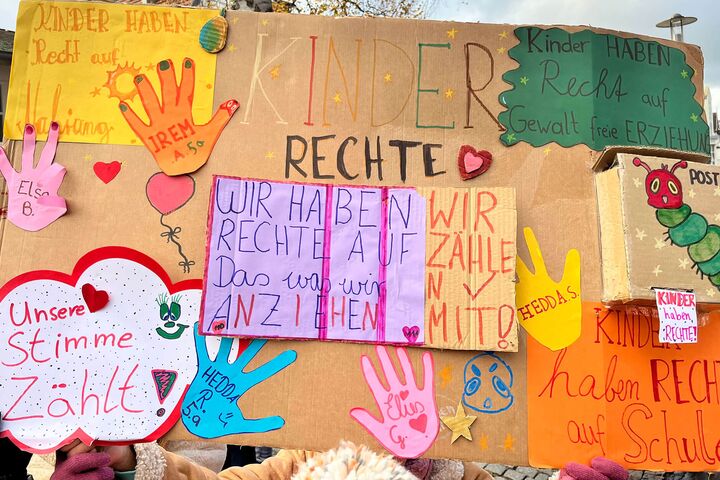 KINDER HABEN
Recht auf
Nahrung
KINDER
RECHTE
Kinder HABEN
Recht auf
Gewalt freie ERZIEHUNG
IREM
5a
Elsa
B.
POST
WIR HABEN
RECHTE AUF
Das was wir
ANZIEHEN
WIR
ZÄHLE
N
MIT!
HEDDA S.
KINDER
haben
RECHTE!
Unsere
Stimme
Zählt
HEDDA
R.
5a
Elias
G.
KINDER
haben RECH
auf Schule